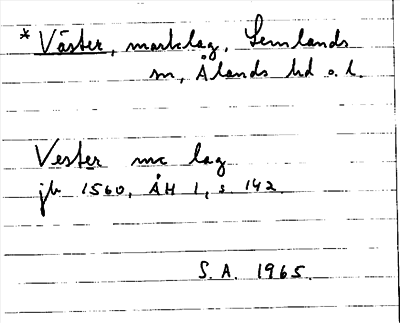 * Väster, marklag, Lemlands
sn, Ålands hd o. l.
Vester mc lag
jb 1560, ÅH 1, s 142.
S. A. 1965.